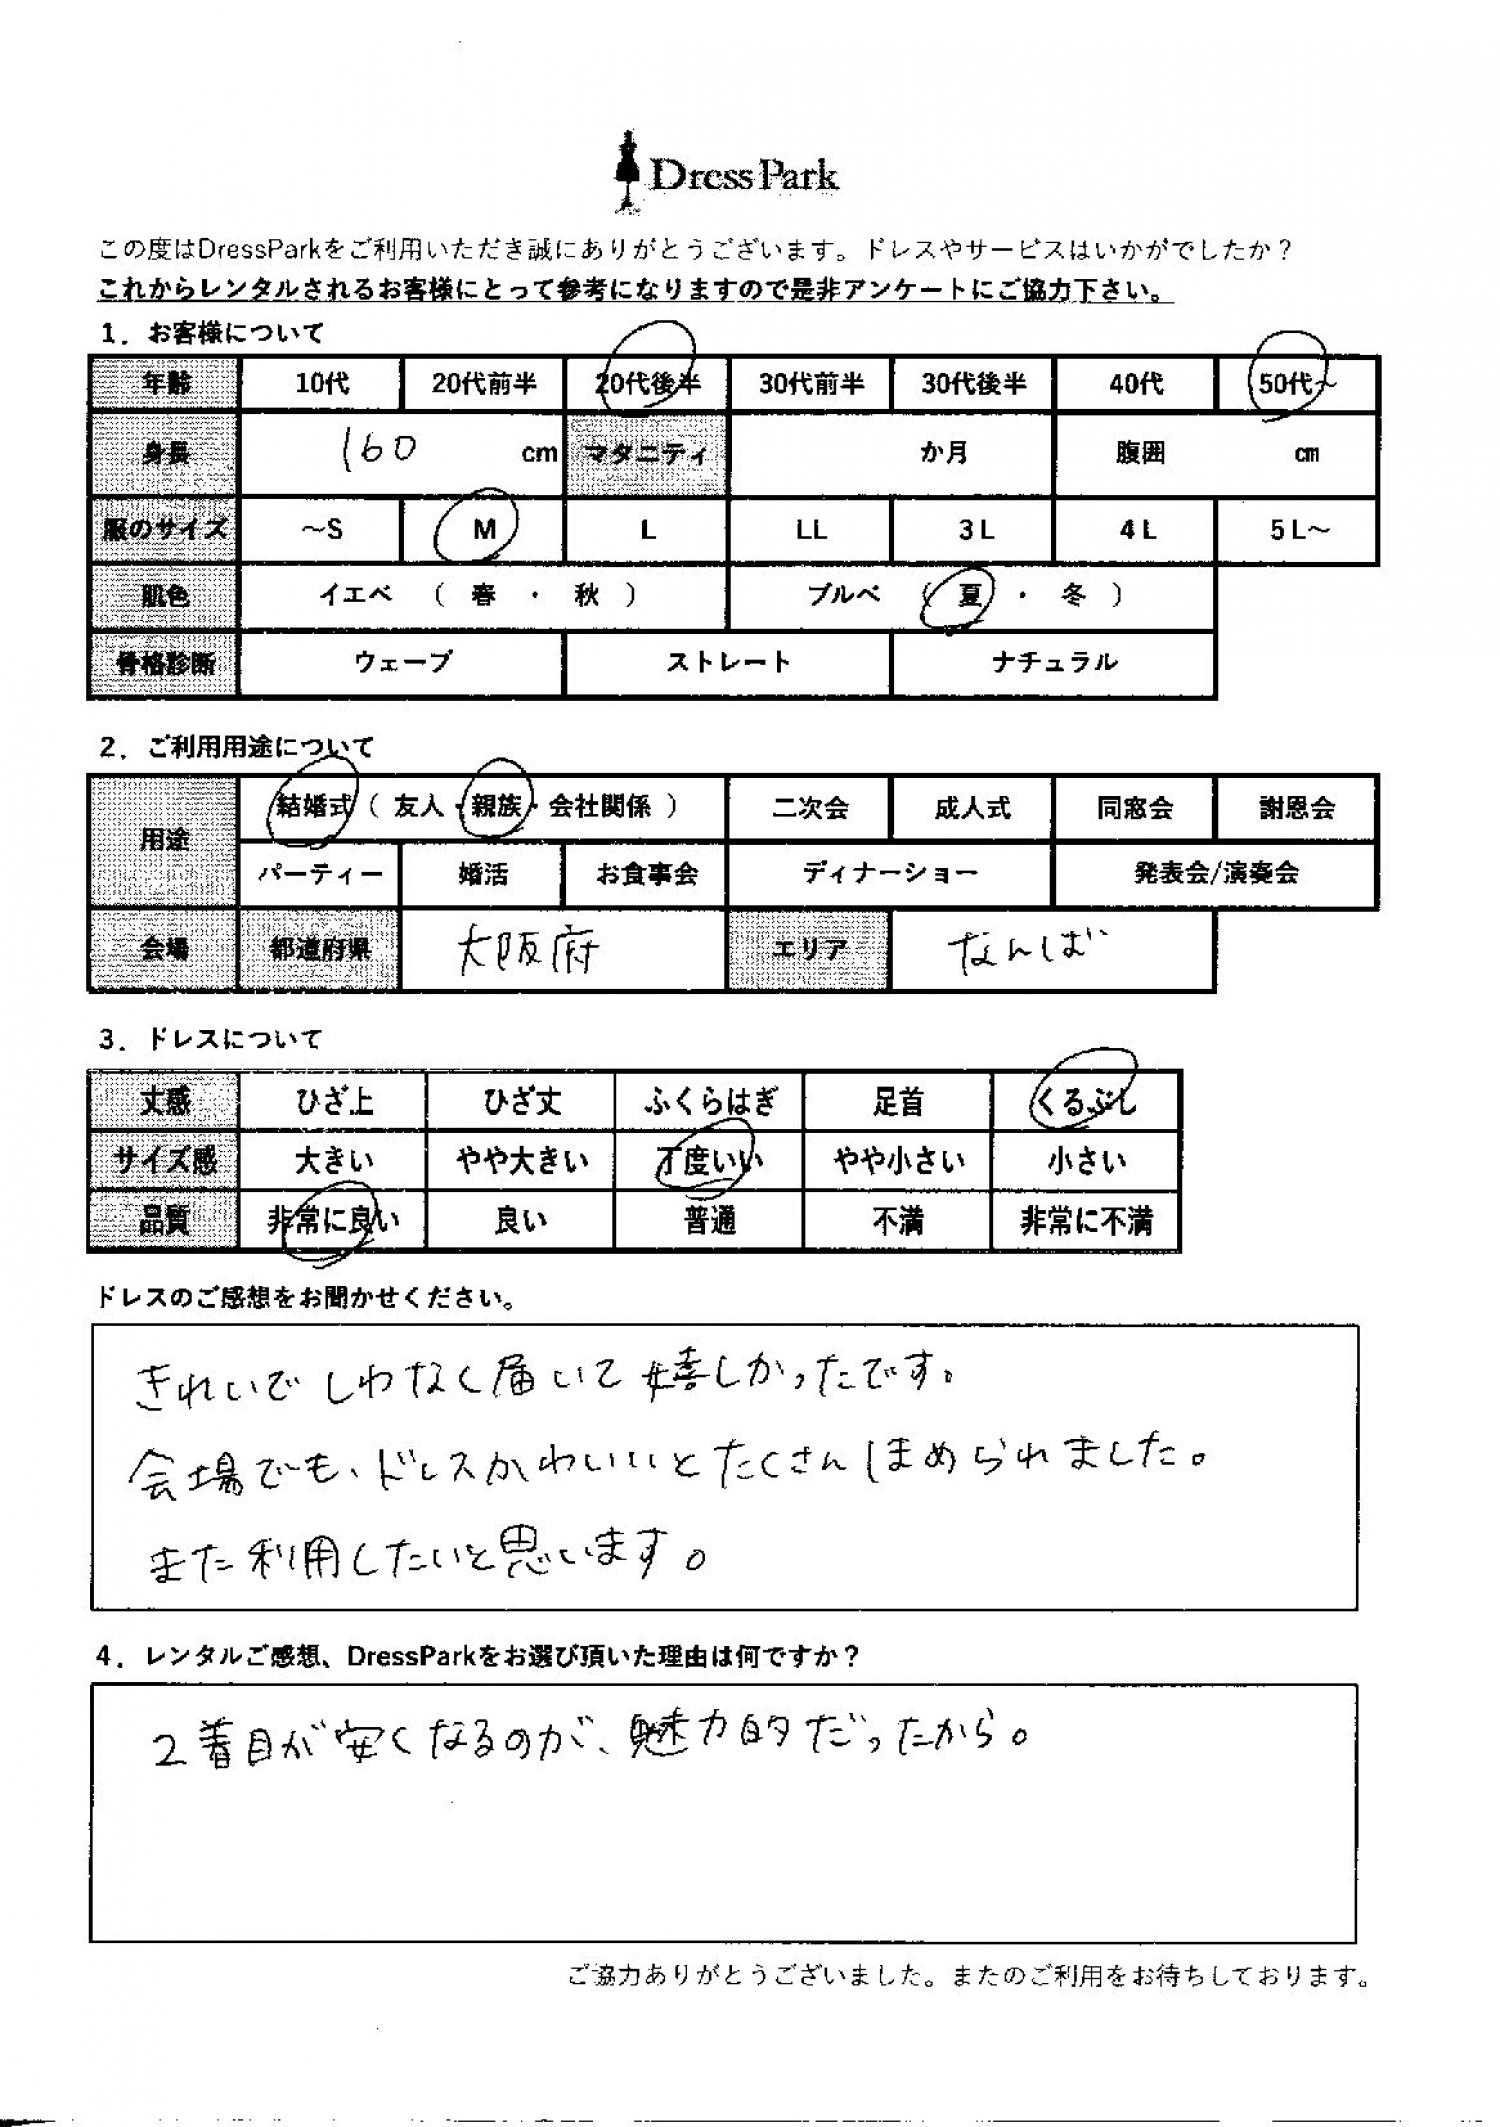 DressPark
この度はDressParkをご利用いただき誠にありがとうございます。ドレスやサービスはいかがでしたか？
これからレンタルされるお客様にとって参考になりますので是非アンケートにご協力下さい。
1．お客様について
年齢 10代 20代前半 20代後半 30代前半 30代後半 40代 50代～
身長 160 cm マタニティ か月 腹囲 cm
服のサイズ ～S M L LL 3L 4L 5L～
肌色 イエベ （ 春 ・ 秋 ） ブルベ （ 夏 ・ 冬 ）
骨格診断 ウェーブ ストレート ナチュラル
2．ご利用用途について
用途 結婚式（ 友人・親族・会社関係 ） 二次会 成人式 同窓会 謝恩会
パーティー 婚活 お食事会 ディナーショー 発表会/演奏会
会場 都道府県 大阪府 エリア なんば
3．ドレスについて
丈感 ひざ上 ひざ丈 ふくらはぎ 足首 くるぶし
サイズ感 大きい やや大きい 丁度いい やや小さい 小さい
品質 非常に良い 良い 普通 不満 非常に不満
ドレスのご感想をお聞かせください。
きれいでしわなく届いて嬉しかったです。
会場でも、ドレスかわいいとたくさんほめられました。
また利用したいと思います。
4．レンタルご感想、DressParkをお選び頂いた理由は何ですか？
2着目が安くなるのが、魅力的だったから。
ご協力ありがとうございました。またのご利用をお待ちしております。